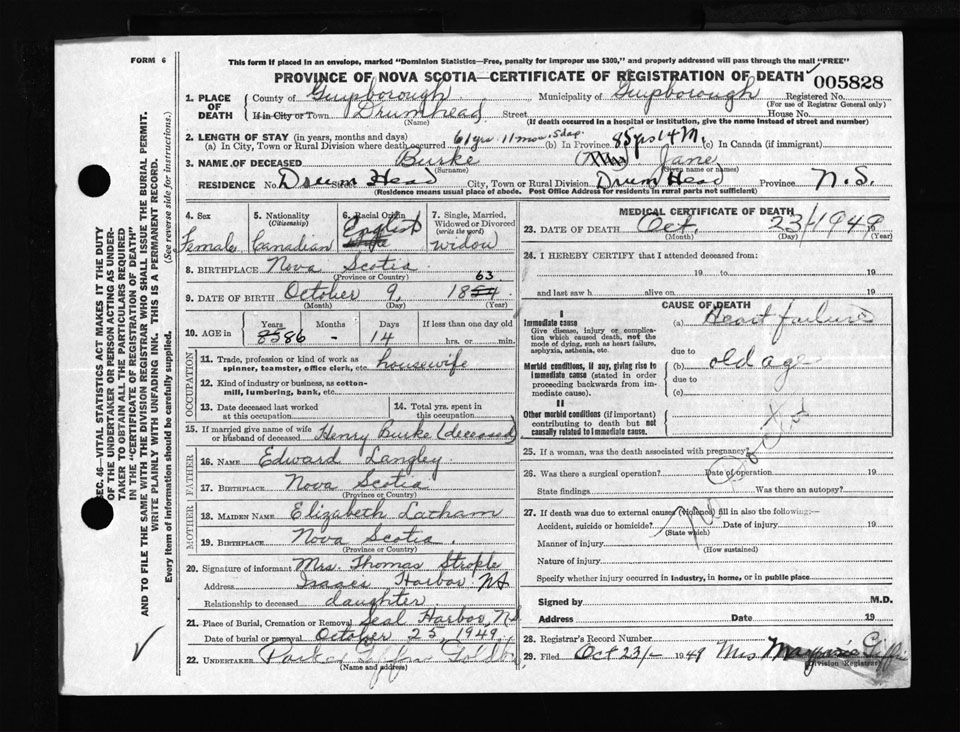 FORM 6
This form if placed in an envelope, marked "Dominion Statistics—Free, penalty for improper use $300," and properly addressed will pass through the mail "FREE"
PROVINCE OF NOVA SCOTIA—CERTIFICATE OF REGISTRATION OF DEATH
005828
1. PLACE OF DEATH
County of Guysborough Municipality of Guysborough Registered No.
(For use of Registrar General only)
If in City or Town Drumhead Street House No.
(Name) (If death occurred in a hospital or institution, give the name instead of street and number)
2. LENGTH OF STAY (in years, months and days)
(a) In City, Town or Rural Division where death occurred 61 yrs. 11 mos. (b) In Province 85 yrs 14 (c) In Canada (if immigrant)
3. NAME OF DECEASED Burke Jane
(Surname) (Given name or names)
RESIDENCE No. Drum Head Street City, Town or Rural Division Drum Head Province N.S.
(Residence means usual place of abode. Post Office Address for residents in rural parts not sufficient)
4. Sex Female
5. Nationality (Citizenship) Canadian
6. Racial Origin English
7. Single, Married, Widowed or Divorced (write the word) widow
8. BIRTHPLACE Nova Scotia
(Province or Country)
9. DATE OF BIRTH October 9, 1854 63
(Month) (Day) (Year)
10. AGE in Years 85 86 Months - Days 14 If less than one day old hrs. or min.
OCCUPATION
11. Trade, profession or kind of work as spinner, teamster, office clerk, etc. housewife
12. Kind of industry or business, as cotton-mill, lumbering, bank, etc.
13. Date deceased last worked at this occupation
14. Total yrs. spent in this occupation
15. If married give name of wife or husband of deceased Henry Burke (deceased)
FATHER
16. NAME Edward Langley
17. BIRTHPLACE Nova Scotia
(Province or Country)
MOTHER
18. MAIDEN NAME Elizabeth Latham
19. BIRTHPLACE Nova Scotia.
(Province or Country)
20. Signature of informant Mrs. Thomas Strople
Address Isaacs Harbor NS
Relationship to deceased daughter
21. Place of Burial, Cremation or Removal Seal Harbor, N.S
Date of burial or removal October 25, 1949
22. UNDERTAKER Parker Giffin
(Name and address)
MEDICAL CERTIFICATE OF DEATH
23. DATE OF DEATH Oct. 23 1949
(Month) (Day) (Year)
24. I HEREBY CERTIFY that I attended deceased from:
19 to 19
and last saw h alive on 19
CAUSE OF DEATH
I
Immediate cause
Give disease, injury or complication which caused death, not the mode of dying, such as heart failure, asphyxia, asthenia, etc.
(a) Heart failure
due to
Morbid conditions, if any, giving rise to immediate cause (stated in order proceeding backwards from immediate cause).
old age
due to
(c)
II
Other morbid conditions (if important) contributing to death but not causally related to immediate cause.
25. If a woman, was the death associated with pregnancy?
26. Was there a surgical operation? Date of operation 19
State findings Was there an autopsy?
27. If death was due to external causes (violence) fill in also the following:—
Accident, suicide or homicide? Date of injury 19
(State which)
Manner of injury
(How sustained)
Nature of injury
Specify whether injury occurred in industry, in home, or in public place
No Doctor
Signed by M.D.
Address Date 19
28. Registrar's Record Number
29. Filed Oct 23 1949 Mrs Giffin
(Division Registrar)
SEC. 46—VITAL STATISTICS ACT MAKES IT THE DUTY
OF THE UNDERTAKER OR PERSON ACTING AS UNDER-
TAKER TO OBTAIN ALL THE PARTICULARS REQUIRED
IN THE "CERTIFICATE OF REGISTRATION OF DEATH"
AND TO FILE THE SAME WITH THE DIVISION REGISTRAR WHO SHALL ISSUE THE BURIAL PERMIT.
WRITE PLAINLY WITH UNFADING INK. THIS IS A PERMANENT RECORD.
Every item of information should be carefully supplied. (See reverse side for instructions.)